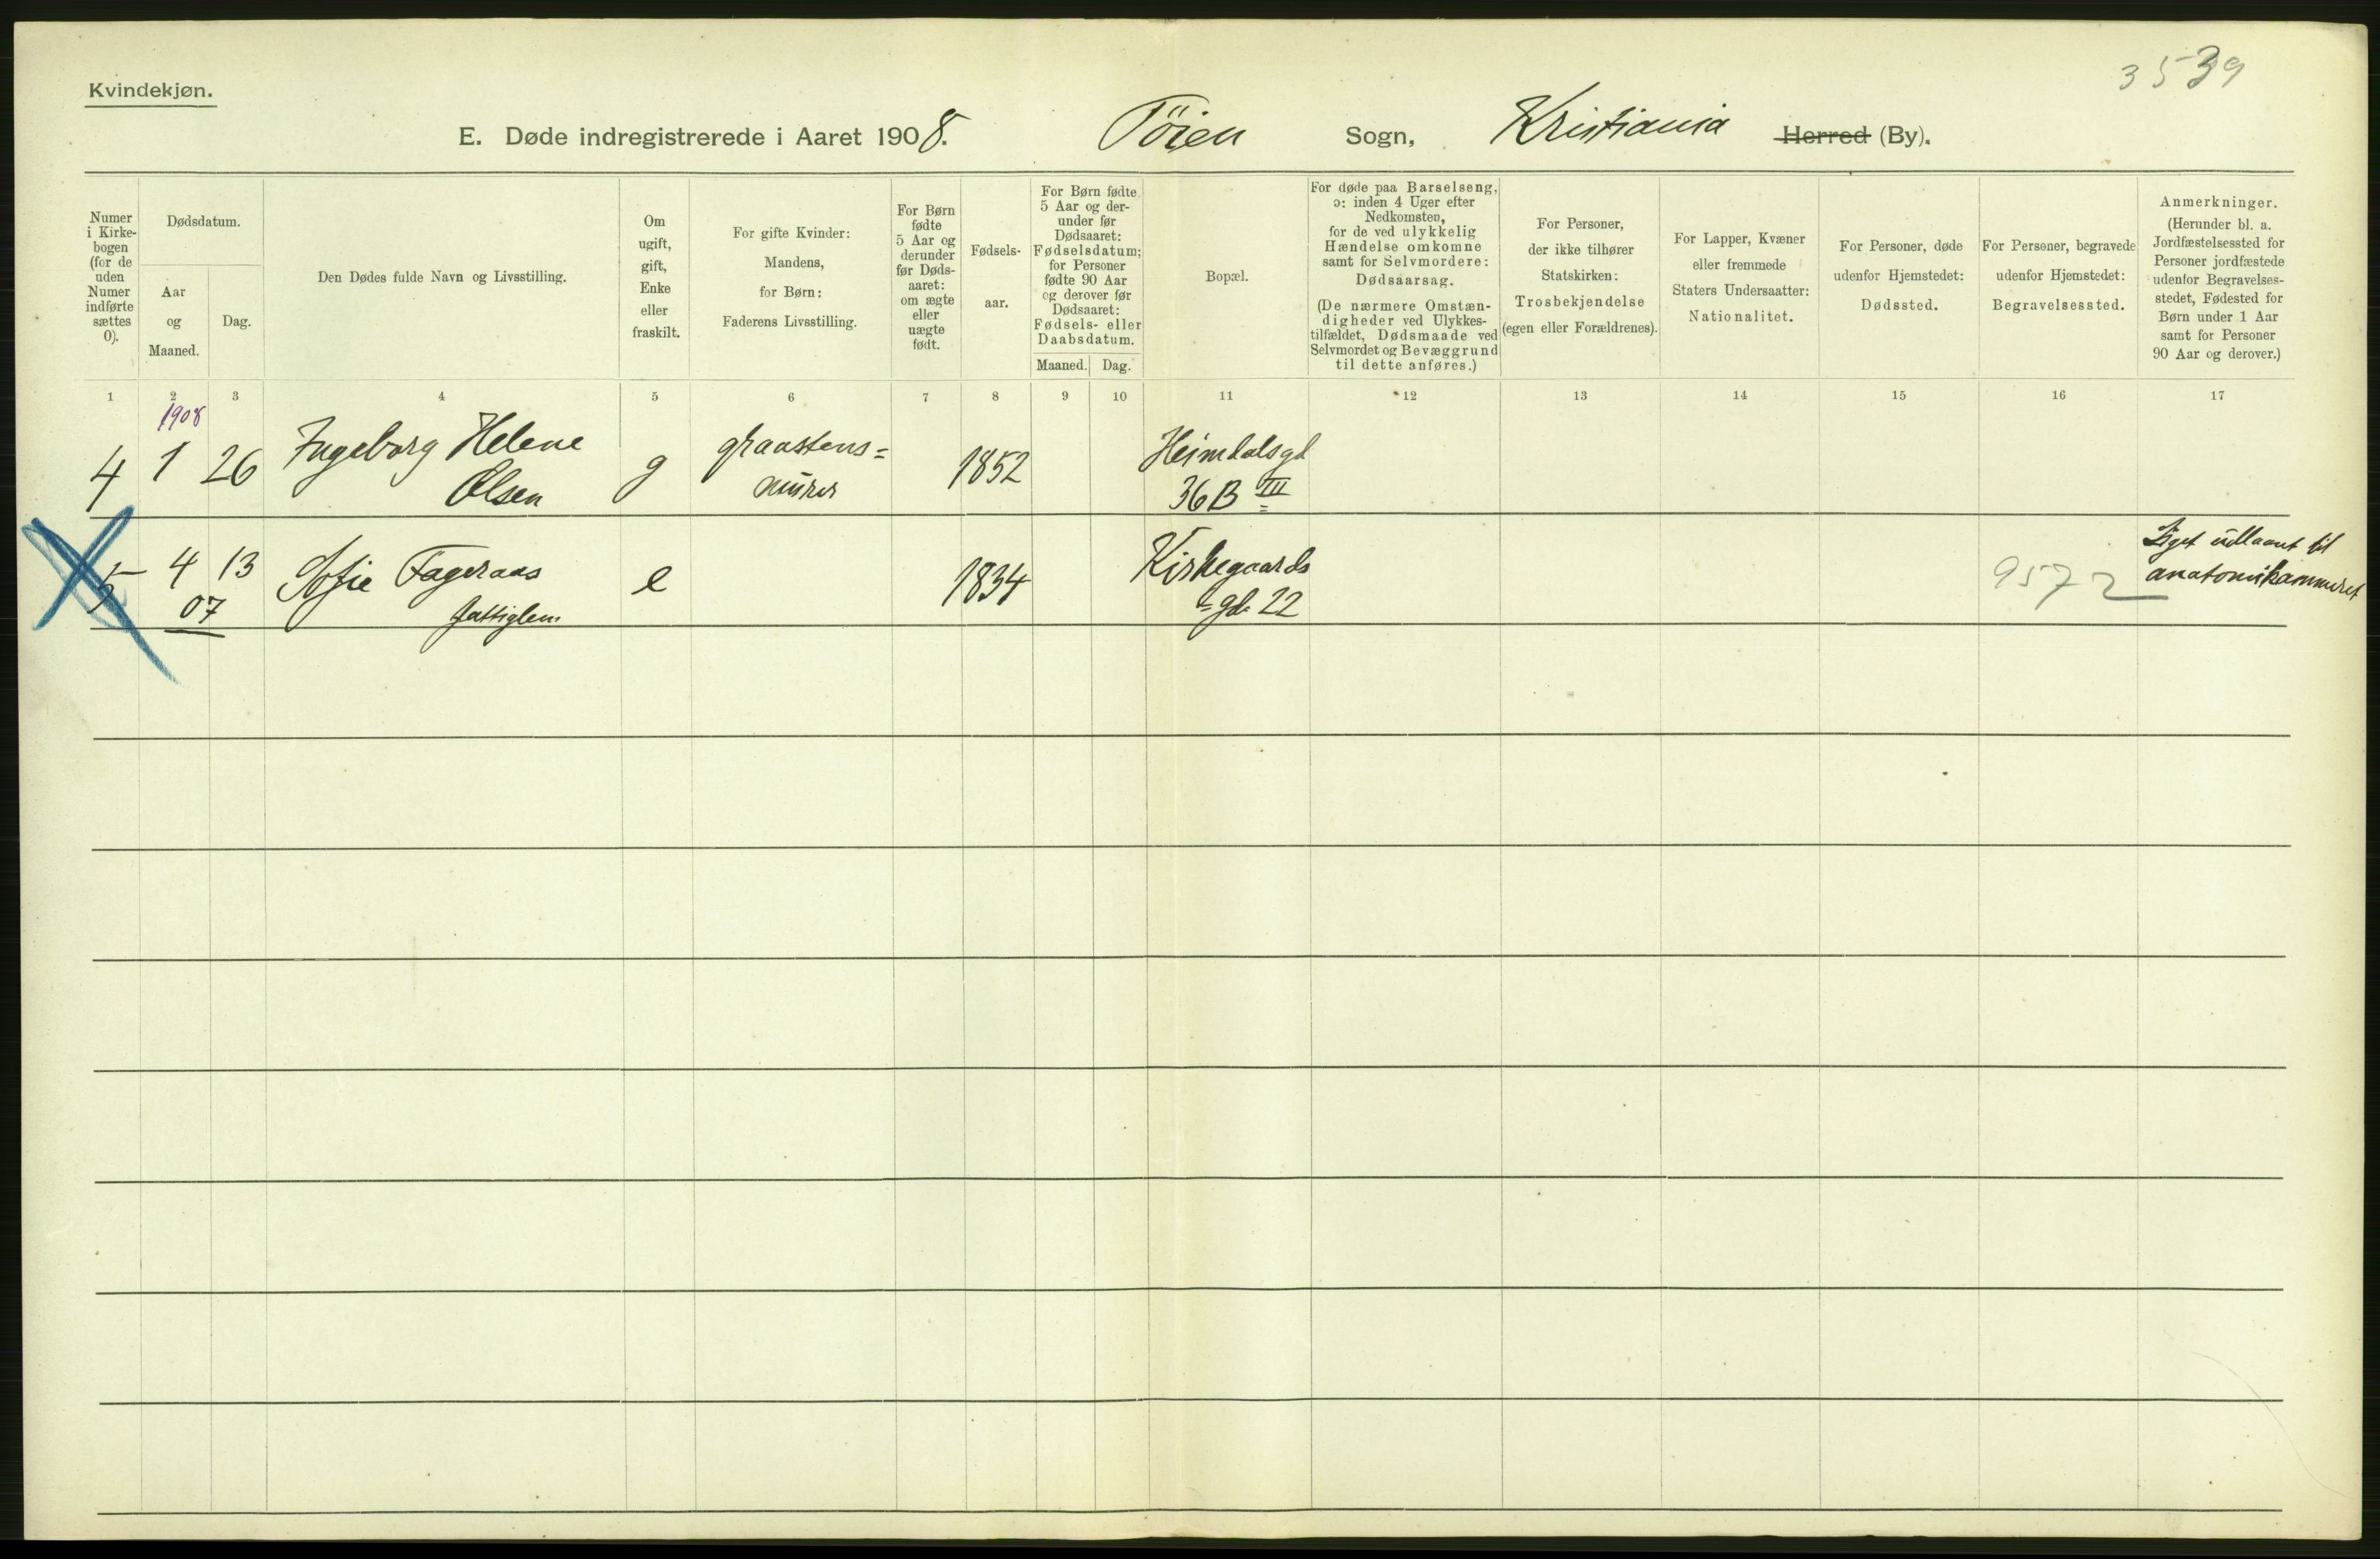 Kvindekjøn.
3539
E. Døde indregistrerede i Aaret 1908. Töien Sogn, Kristiania Herred (By).
Numer i Kirke-bogen (for de uden Numer indførte sættes 0).
Dødsdatum.
Aar og Maaned.
Dag.
Den Dødes fulde Navn og Livsstilling.
Om ugift, gift, Enke eller fraskilt.
For gifte Kvinder: Mandens, for Børn: Faderens Livsstilling.
For Børn fødte 5 Aar og derunder før Døds-aaret: om ægte eller uægte født.
Fødsels-aar.
For Børn fødte 5 Aar og der-under før Dødsaaret: Fødselsdatum; for Personer fødte 90 Aar og derover før Dødsaaret: Fødsels- eller Daabsdatum.
Maaned. Dag.
Bopæl.
For døde paa Barselseng, ɔ: inden 4 Uger efter Nedkomsten, for de ved ulykkelig Hændelse omkomne samt for Selvmordere: Dødsaarsag.
(De nærmere Omstæn-digheder ved Ulykkes-tilfældet, Dødsmaade ved Selvmordet og Bevæggrund til dette anføres.)
For Personer, der ikke tilhører Statskirken: Trosbekjendelse (egen eller Forældrenes).
For Lapper, Kvæner eller fremmede Staters Undersaatter: Nationalitet.
For Personer, døde udenfor Hjemstedet: Dødssted.
For Personer, begravede udenfor Hjemstedet: Begravelsessted.
Anmerkninger.
(Herunder bl. a. Jordfæstelsessted for Personer jordfæstede udenfor Begravelses-stedet, Fødested for Børn under 1 Aar samt for Personer 90 Aar og derover.)
1 2 3 4 5 6 7 8 9 10 11 12 13 14 15 16 17
1908
4 1 26 Ingeborg Helene g graastens= 1852 Heimdalsgd
Olsen murer 36B III
5 4 13 Sofie Fageraas e 1834 Kirkegaards 9572 Liget udlaant til
07 fattiglem =gd. 22 anatomikammeret